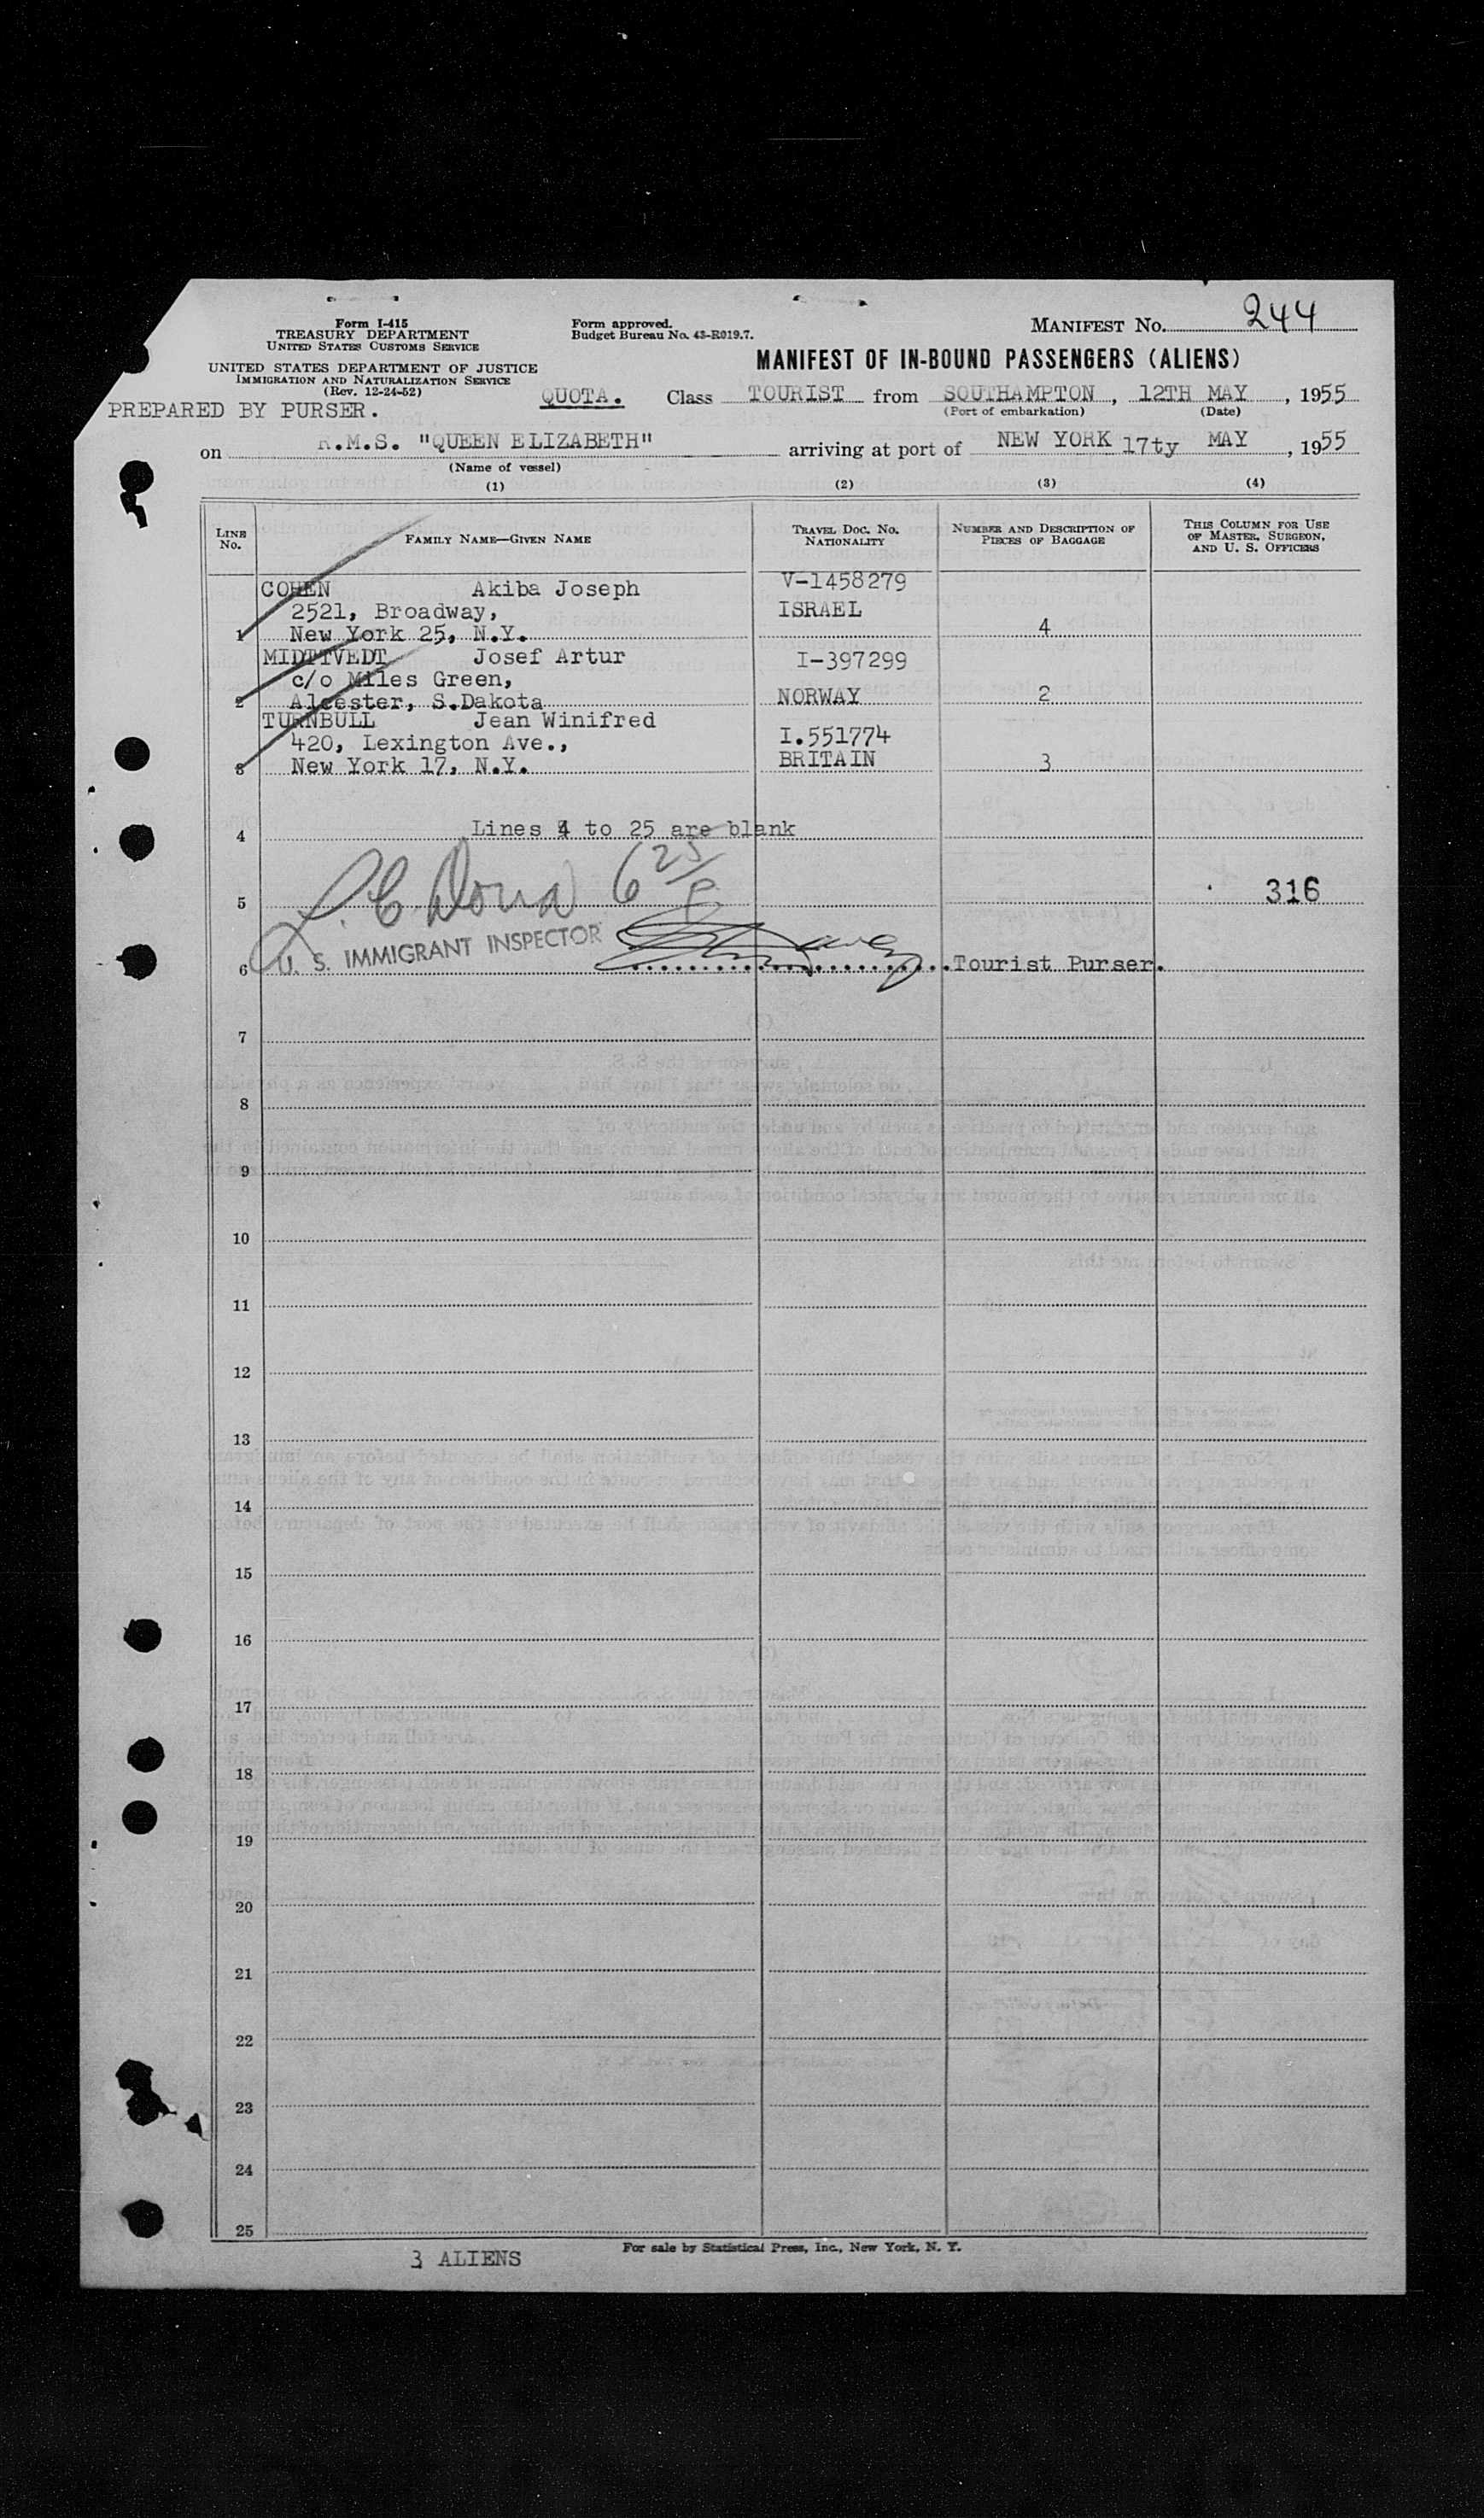 Form I-415
TREASURY DEPARTMENT
UNITED STATES CUSTOMS SERVICE
UNITED STATES DEPARTMENT OF JUSTICE
IMMIGRATION AND NATURALIZATION SERVICE
(Rev. 12-24-52)
PREPARED BY PURSER.
Form approved.
Budget Bureau No. 43-R019.7.
MANIFEST NO. 244
MANIFEST OF IN-BOUND PASSENGERS (ALIENS)
QUOTA. Class TOURIST from SOUTHAMPTON, 12TH MAY, 1955
(Port of embarkation) (Date)
on R.M.S. "QUEEN ELIZABETH" arriving at port of NEW YORK 17ty MAY, 1955
(Name of vessel)
(1) (2) (3) (4)
LINE No. FAMILY NAME—GIVEN NAME TRAVEL DOC. NO. NATIONALITY NUMBER AND DESCRIPTION OF PIECES OF BAGGAGE THIS COLUMN FOR USE OF MASTER, SURGEON, AND U. S. OFFICERS
COHEN Akiba Joseph V-1458279
2521, Broadway, ISRAEL
1 New York 25, N.Y. 4
MIDTTVEDT Josef Artur I-397299
c/o Miles Green,
2 Alcester, S.Dakota NORWAY 2
TURNBULL Jean Winifred
420, Lexington Ave., I.551774
3 New York 17, N.Y. BRITAIN 3
4 Lines 4 to 25 are blank
5 316
U. S. IMMIGRANT INSPECTOR
6 Tourist Purser.
7
8
9
10
11
12
13
14
15
16
17
18
19
20
21
22
23
24
25
3 ALIENS
For sale by Statistical Press, Inc., New York, N. Y.